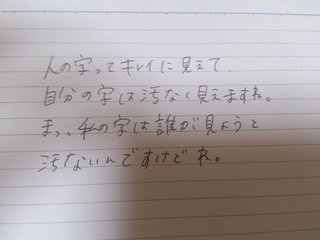 人の字ってキレイに見えて
自分の字は汚なく見えますね。
まっ、私の字は誰が見ようと
汚ないんですけどね。